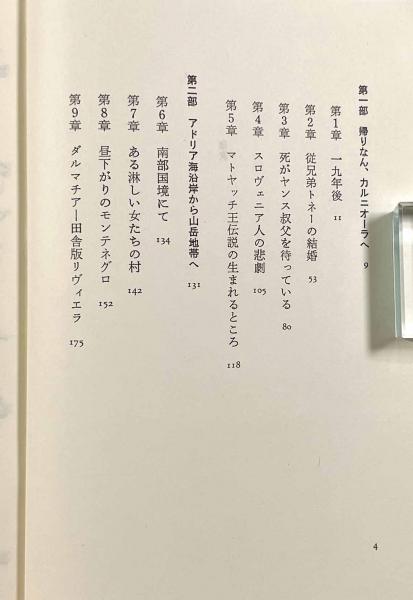 第一部 帰りなん、カルニオーラへ 9
第1章 一九年後 11
第2章 従兄弟トネーの結婚 53
第3章 死がヤンス叔父を待っている 80
第4章 スロヴェニア人の悲劇 105
第5章 マトヤッチ王伝説の生まれるところ 118
第二部 アドリア海沿岸から山岳地帯へ 131
第6章 南部国境にて 134
第7章 ある淋しい女たちの村 142
第8章 昼下がりのモンテネグロ 152
第9章 ダルマチアー田舎版リヴィエラ 175
4